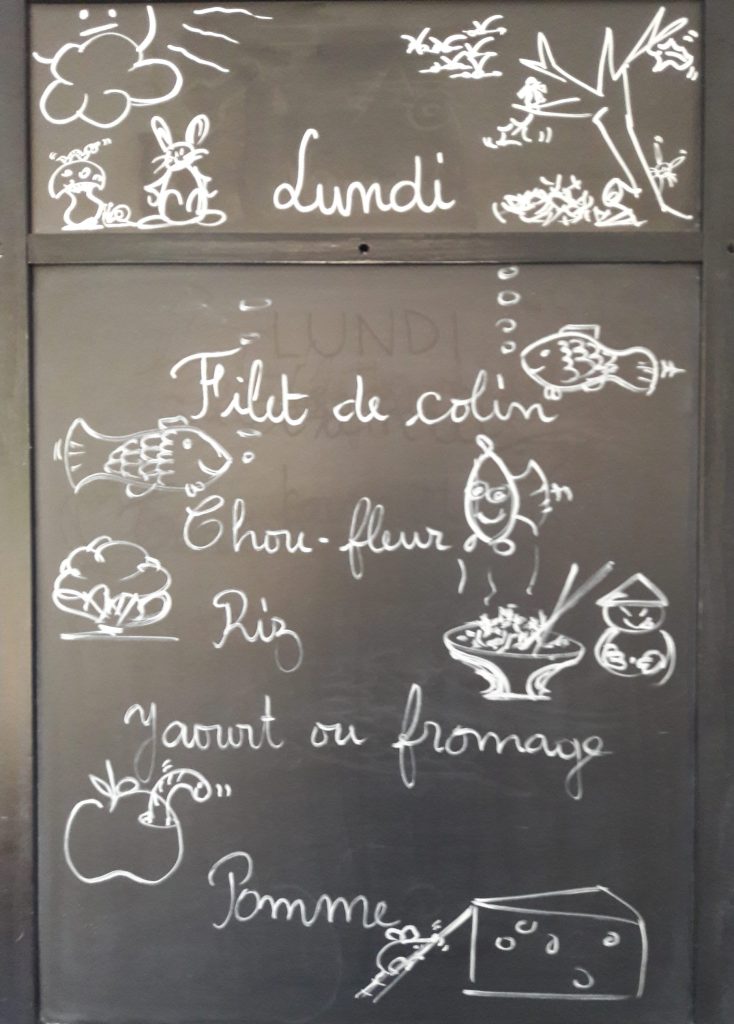 Lundi
LUNDI
Filet de colin
Chou-fleur
Riz
Yaourt ou fromage
Pomme